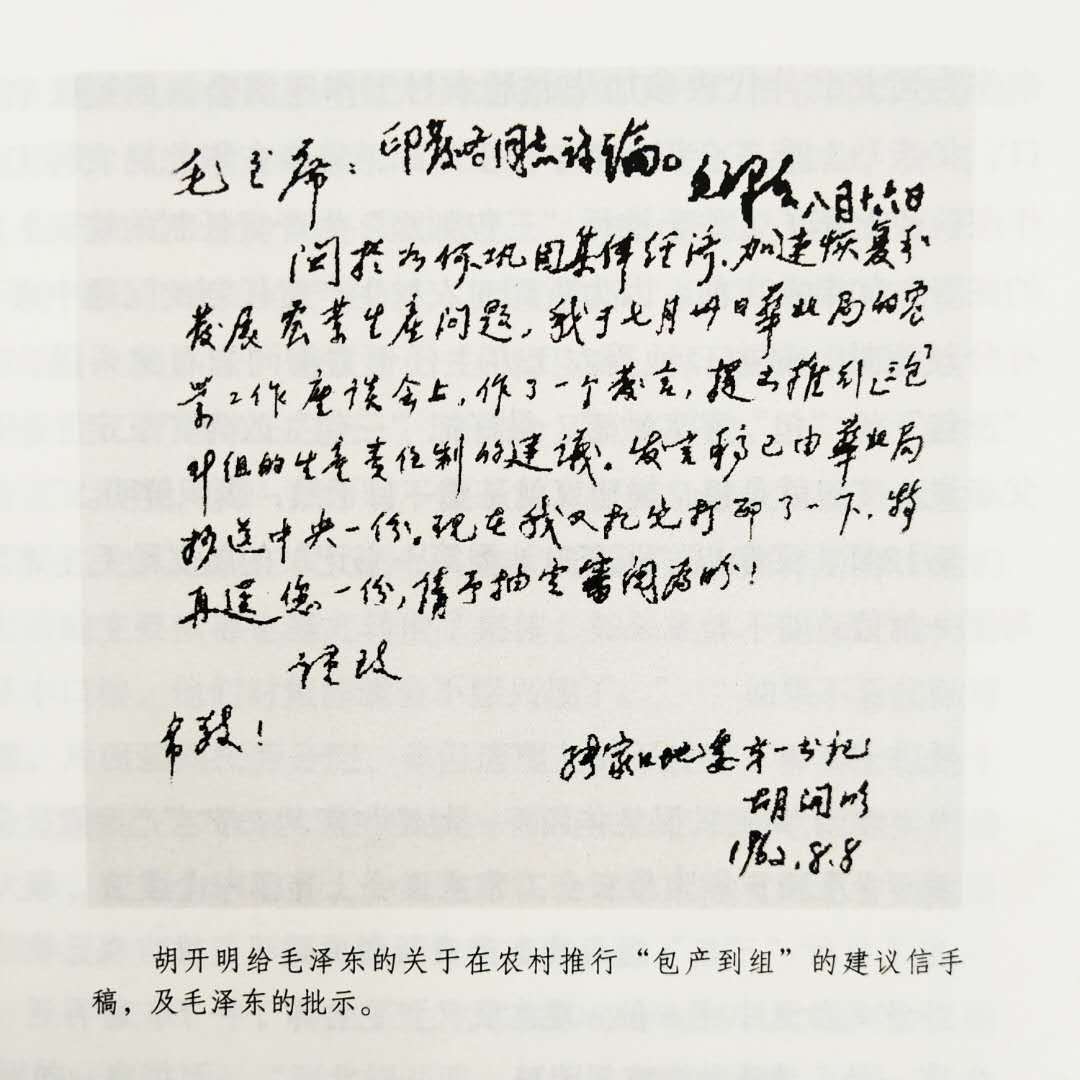 毛主席：印发各同志讨论。
毛泽东 八月十六日
关于如何巩固集体经济、加速恢复和
发展农业生产问题，我于七月卅日华北局的农
业工作座谈会上，作了一个发言，提出推行“三包”
到组的生产责任制的建議。发言稿已由華北局
抄送中央一份。现在我又把它打印了一下，特
再送您一份，请予抽空審阅为盼！
谨致
敬！
张家口地委第一书记
胡开明
1962.8.8
胡开明给毛泽东的关于在农村推行“包产到组”的建议信手
稿，及毛泽东的批示。